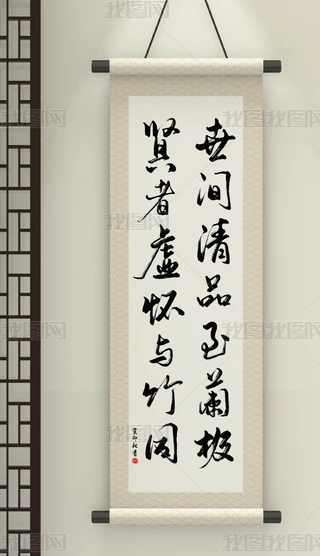 世间清品至兰极
贤者虚怀与竹同
癸卯秋書
我图网